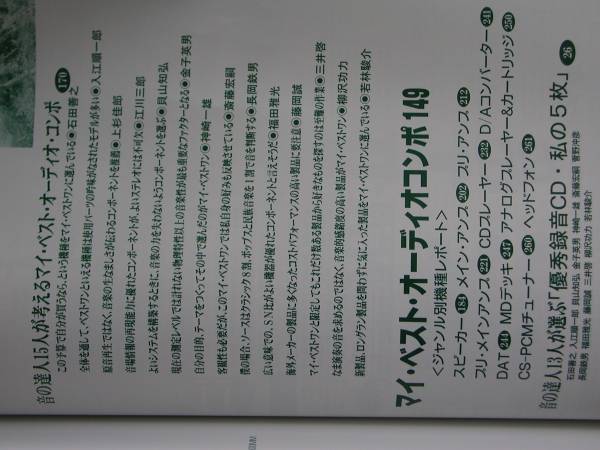 音の達人15人が考えるマイ・ベスト・オーディオ・コンポ 170
この予算で自分が買うなら、という機種をマイ・ベストワンに選んでいる●石田善之
全体を通して、ベストワンといえる機種は使用パーツの吟味がなされたモデルが多い●入江順一郎
原音再生ではなく、音楽の生なましさが伝わるコンポーネントを推薦●上杉佳郎
音場情報の再現能力に優れたコンポーネントが、よいステレオには不可欠●江川三郎
よいシステムを構築するときに、音楽の力を失わないようコンポーネントを選ぶ●貝山知弘
現在の測定レベルでは計れない物理特性以上の音楽性が最も重要なファクターとなる●金子英男
自分の目的、テーマをつくってその中で選んだのがマイ・ベストワン●神崎一雄
客観性も必要だが、このマイ・ベストワンでは私自身の好みも反映させている●斎藤宏嗣
僕の場合、ソースはクラシック９割、ポップスと民族音楽を１割で音を判断する●長岡鉄男
広い意味での、SN比がよい機器が優れたコンポーネントと言えそうだ●福田雅光
海外メーカーの製品に多くなったコストパフォーマンスの高い製品に要注意●藤岡誠
マイ・ベストワンと限定してもこれだけ数ある製品から好きなものを探すのは至難の作業●三井啓
なま演奏の音を求めるのではなく、音楽的感銘度の高い製品がマイ・ベストワン●柳沢功力
新製品、ロングラン製品を問わずに気に入った製品をマイ・ベストワンに選んでいる●若林駿介
マイ・ベスト・オーディオコンポ149
＜ジャンル別機種レポート＞
スピーカー 184 メイン・アンプ 202 プリ・アンプ 212
プリ・メインアンプ 221 CDプレーヤー 232 D/Aコンバーター 241
DAT 246 MDデッキ 247 アナログプレーヤー&カートリッジ 250
CS-PCMチューナー 260 ヘッドフォン 261
音の達人13人が選ぶ「優秀録音CD・私の５枚」 26
石田善之 入江順一郎 貝山知弘 金子英男 神崎一雄 斎藤宏嗣 菅野沖彦
長岡鉄男 福田雅光 藤岡誠 三井啓 柳沢功力 若林駿介